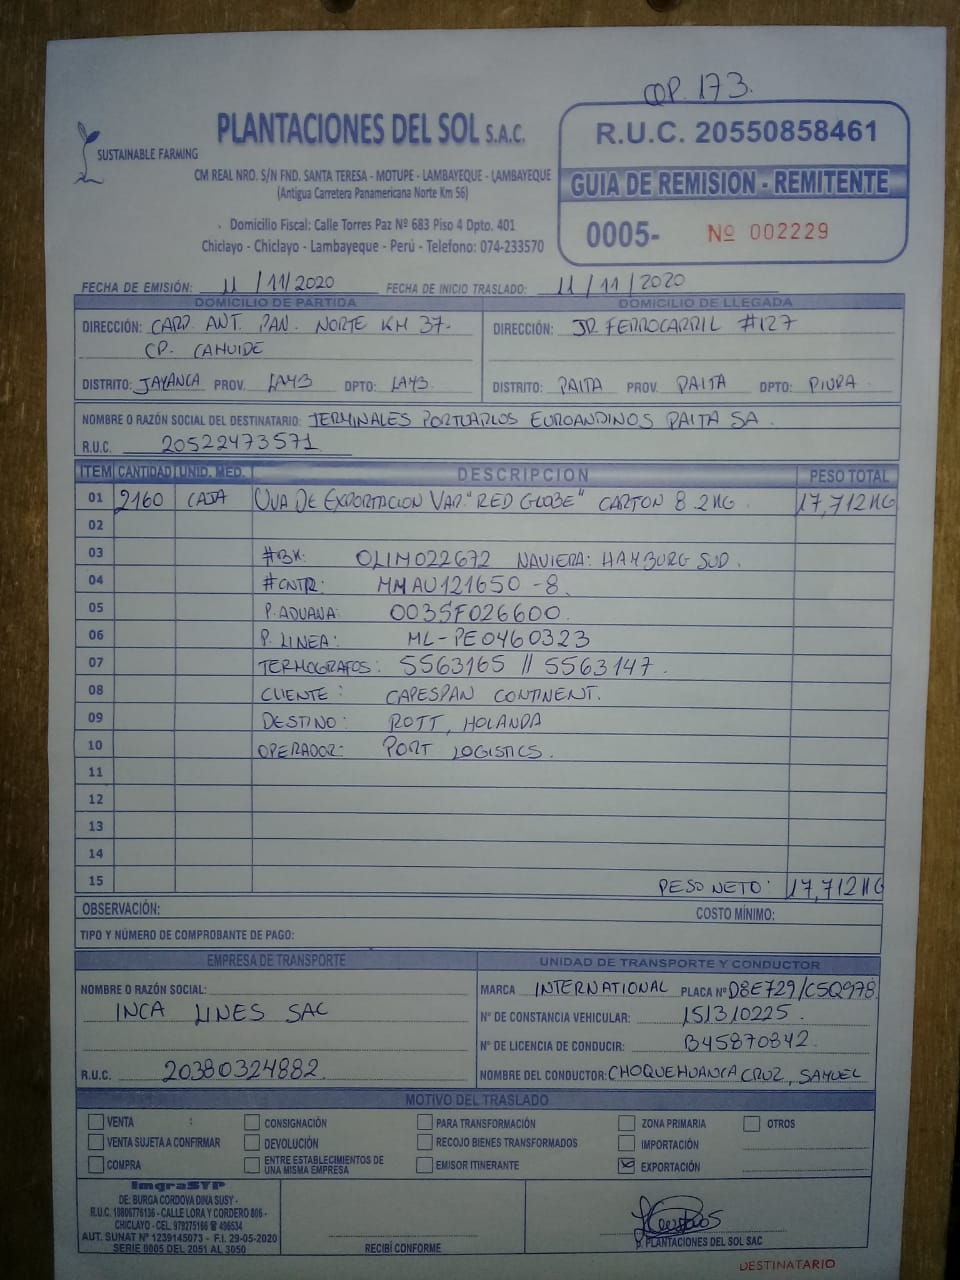 OP. 173.
PLANTACIONES DEL SOL S.A.C.
SUSTAINABLE FARMING
CM REAL NRO. S/N FND. SANTA TERESA - MOTUPE - LAMBAYEQUE - LAMBAYEQUE
(Antigua Carretera Panamericana Norte Km 56)
Domicilio Fiscal: Calle Torres Paz Nº 683 Piso 4 Dpto. 401
Chiclayo - Chiclayo - Lambayeque - Perú - Telefono: 074-233570
R.U.C. 20550858461
GUIA DE REMISION - REMITENTE
0005- Nº 002229
FECHA DE EMISIÓN: 11 / 11 / 2020 FECHA DE INICIO TRASLADO: 11 / 11 / 2020
DOMICILIO DE PARTIDA DOMICILIO DE LLEGADA
DIRECCIÓN: CARR. ANT. PAN. NORTE KM 37. DIRECCIÓN: JR FERROCARRIL #127
CP. CAHUIDE
DISTRITO: JAYANCA PROV. LAMB DPTO: LAMB. DISTRITO: PAITA PROV. PAITA DPTO: PIURA
NOMBRE O RAZÓN SOCIAL DEL DESTINATARIO: TERMINALES PORTUARIOS EUROANDINOS PAITA SA.
R.U.C. 20522473571
ITEM CANTIDAD UNID. MED. DESCRIPCION PESO TOTAL
01 2160 CAJA UVA DE EXPORTACION VAR. "RED GLOBE" CARTON 8.2KG 17,712KG
02
03 #BK: OLIM022672 NAVIERA: HAMBURG SUD.
04 #CNTR: MMAU121650-8.
05 P. ADUANA: 003SF026600.
06 P. LINEA: ML-PE0460323
07 TERMOGRAFOS: 5563165 // 5563147.
08 CLIENTE: CAPESPAN CONTINENT.
09 DESTINO: ROTT, HOLANDA
10 OPERADOR: PORT LOGISTICS.
11
12
13
14
15 PESO NETO: 17,712KG
OBSERVACIÓN: COSTO MÍNIMO:
TIPO Y NÚMERO DE COMPROBANTE DE PAGO:
EMPRESA DE TRANSPORTE UNIDAD DE TRANSPORTE Y CONDUCTOR
NOMBRE O RAZÓN SOCIAL: MARCA INTERNATIONAL PLACA Nº D8E729/C5Q978
INCA LINES SAC Nº DE CONSTANCIA VEHICULAR: 151310225.
Nº DE LICENCIA DE CONDUCIR: B45870842.
R.U.C. 20380324882. NOMBRE DEL CONDUCTOR: CHOQUEHUANCA CRUZ, SAMUEL
MOTIVO DEL TRASLADO
VENTA : CONSIGNACIÓN PARA TRANSFORMACIÓN ZONA PRIMARIA OTROS
VENTA SUJETA A CONFIRMAR DEVOLUCIÓN RECOJO BIENES TRANSFORMADOS IMPORTACIÓN
COMPRA ENTRE ESTABLECIMIENTOS DE UNA MISMA EMPRESA EMISOR ITINERANTE EXPORTACIÓN
ImgraSYP
DE: BURGA CORDOVA DINA SUSY -
R.U.C. 10806776136 - CALLE LORA Y CORDERO 806 -
CHICLAYO - CEL. 979275166 ☎ 496534
AUT. SUNAT Nº 1239145073 - F.I. 29-05-2020
SERIE 0005 DEL 2051 AL 3050
RECIBÍ CONFORME
P. PLANTACIONES DEL SOL SAC
DESTINATARIO